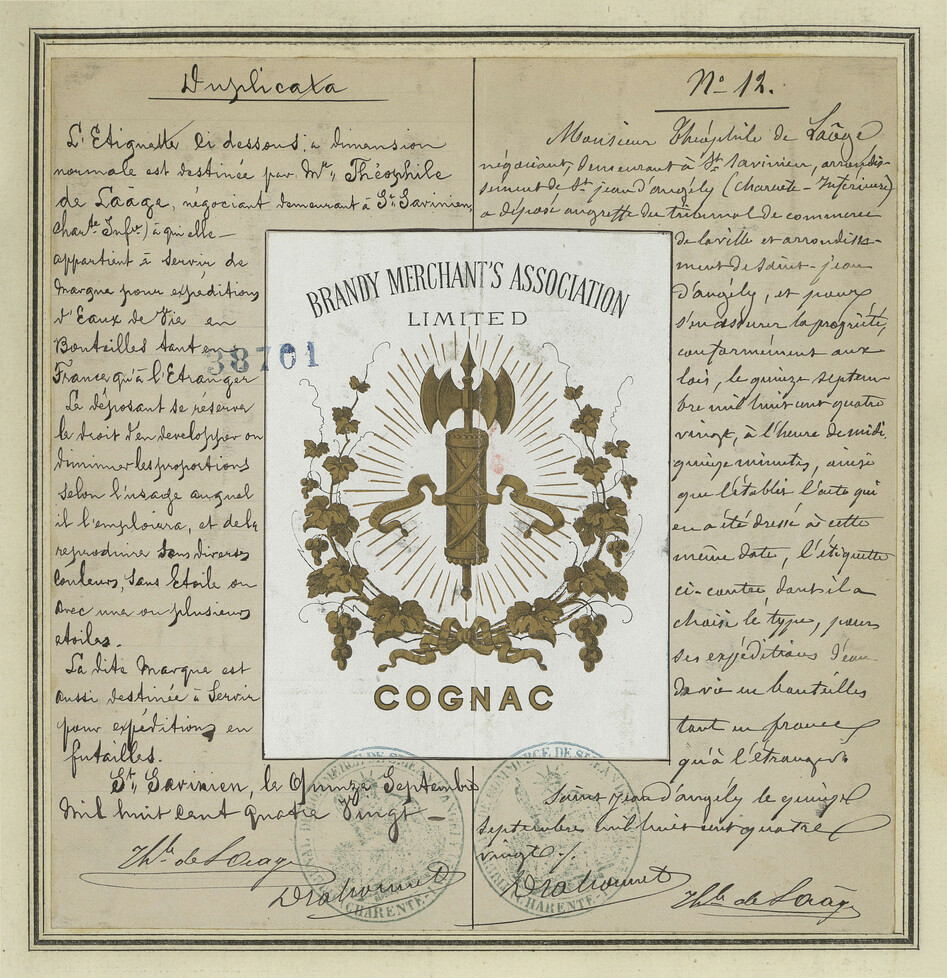 Duplicata
L'Etiquette ci dessous, à dimension
normale est destinée par Mr. Théophile
de Laâge, négociant demeurant à St. Savinien,
Charte. Infre.) à qui elle
appartient à servir de
Marque pour expéditions
d'Eaux de Vie en
Bouteilles tant en
France qu'à l'Etranger
Le déposant se réserve
le droit d'en developper ou
diminuer les proportions
selon l'usage auquel
il l'emploiera, et de la
reproduire sous diverses
couleurs, sans Etoile ou
avec une ou plusieurs
etoiles.
La dite Marque est
aussi destinée à servir
pour expéditions en
futailles.
St. Savinien, le Quinze Septembre
Mil huit cent quatre Vingt
Thle de Laage
38701
BRANDY MERCHANT'S ASSOCIATION
LIMITED
COGNAC
No 12.
Monsieur Théophile de Laâge
négociant, demeurant à St. Savinien, arrondis-
sement de St. jean d'angély (charente-Inférieure)
a déposé au greffe du tribunal de commerce
de la ville et arrondisse-
ment de Saint-jean
d'angély, et pour
s'en assurer la propriété,
conformément aux
lois, le quinze septem-
bre mil huit cent quatre
vingt, à l'heure de midi
quinze minutes, ainsi
que l'établit l'acte qui
en a été dressé à cette
même date, l'étiquette
ci-contre dont il a
choisi le type, pour
ses expéditions d'eau-
de vie en bouteilles
tant en france
qu'à l'étranger.
Saint jean d'angély le quinze
septembre mil huit cent quatre
vingt ./.
Thle de Laâge
CHARENTE-I
CHARENTE-I